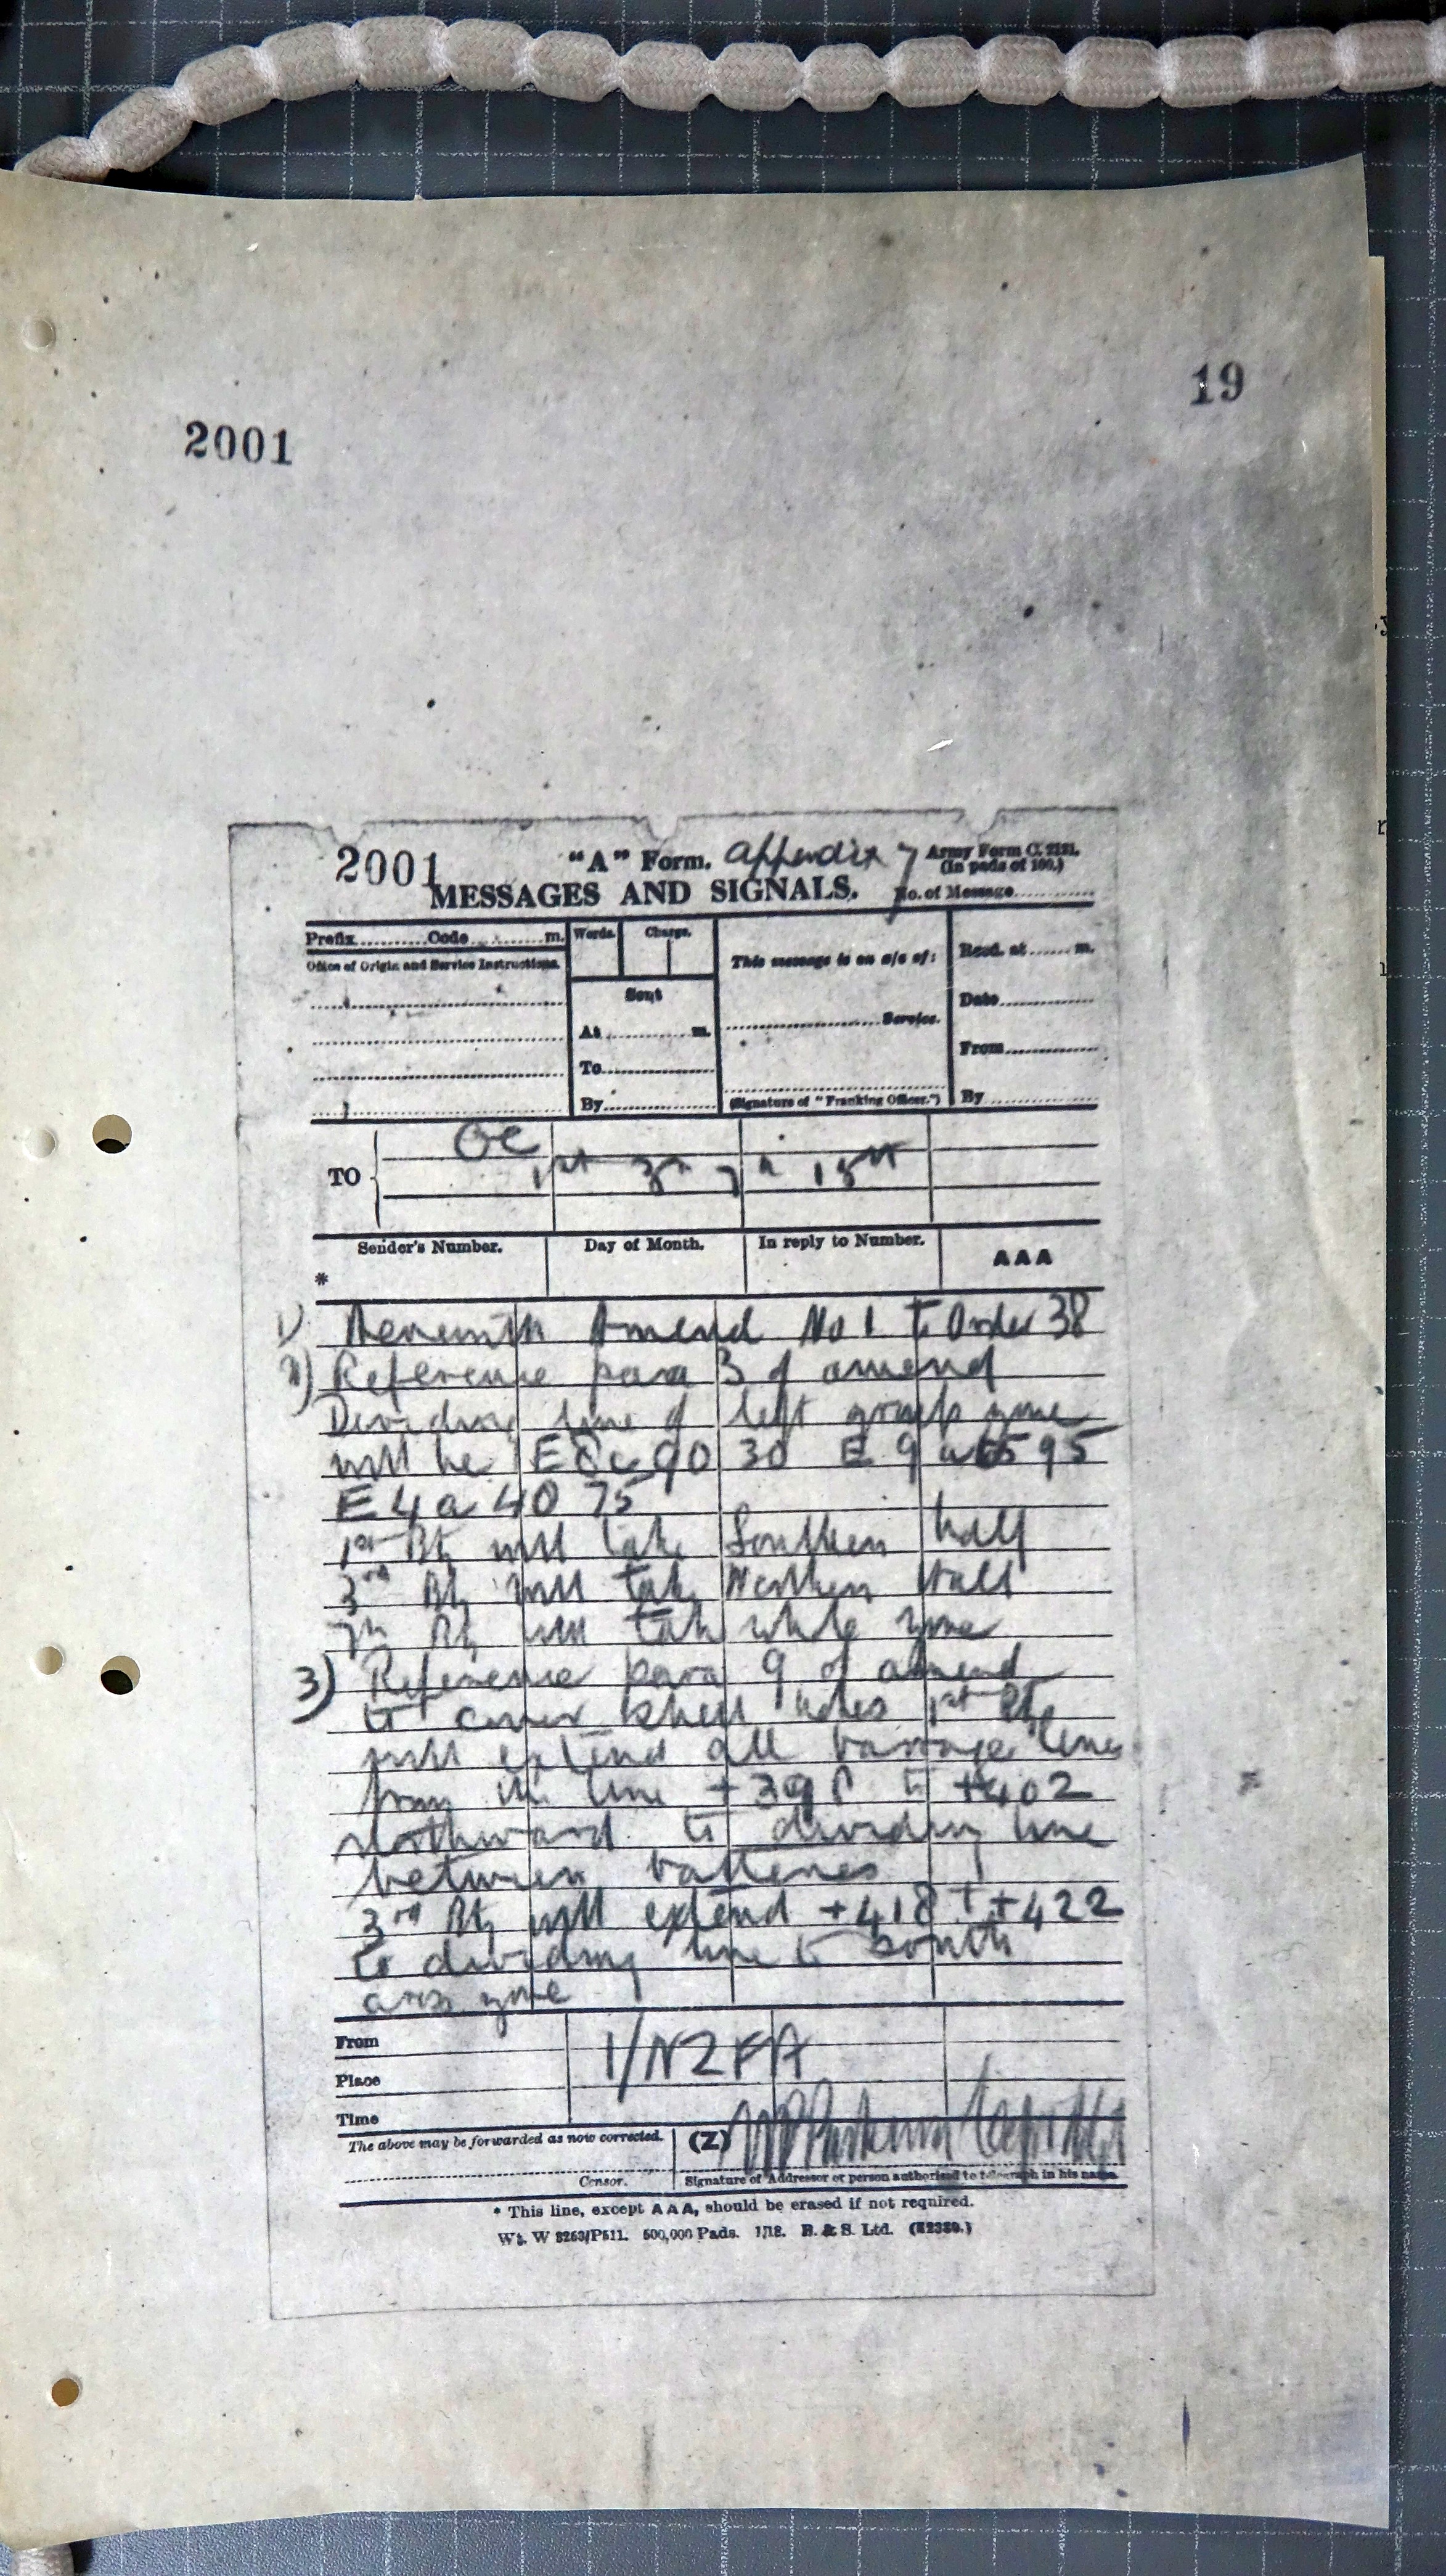 19
2001
2001
"A" Form. appendix 7 Army Form C. 2121.
(In pads of 100.)
MESSAGES AND SIGNALS. No. of Message
Prefix Code m. Words. Charge. This message is on a/c of: Recd. at m.
Office of Origin and Service Instructions.
Sent Date
At m. Service.
To From
By (Signature of "Franking Officer.") By
OC
TO 1st 3rd 7th 15th
Sender's Number. Day of Month. In reply to Number. AAA
*
1) Herewith Amend No 1 to Order 38
2) Reference para 3 of amend
Dividing line of left group zone
will be E8c 90 30 E 9 a 95
E 4 a 40 75
1st Bty will take Southern half
3rd Bty will take Northern Half
7th Bty will take whole zone
3) Reference para 9 of amend
to cover shell holes 1st Bty
will extend all barrage lines
from the line +398 to +402
Northward to dividing line
between batteries
3rd Bty will extend +418 to +422
to dividing line to South
zone
From 1/NZFA
Place
Time
The above may be forwarded as now corrected. (Z)
Censor. Signature of Addressor or person authorised to telegraph in his name.
* This line, except AAA, should be erased if not required.
Wt. W 3253/P511. 500,000 Pads. 1/18. B. & S. Ltd. (E2389.)